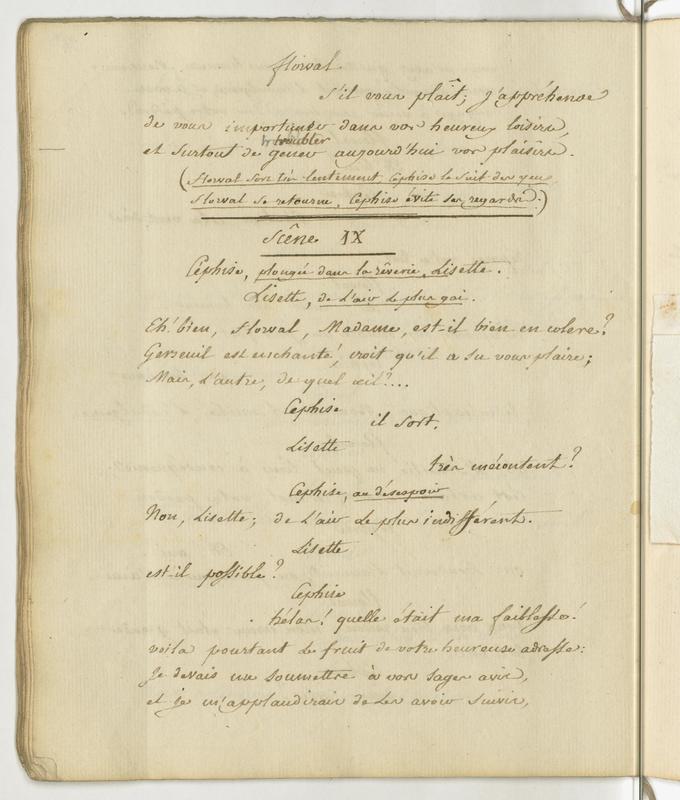 florval
s'il vous plaît; j'appréhende
de vous importuner dans vos heureux loisirs,
troubler
et surtout de gener aujourd'hui vos plaisirs.
(florval sort très lentement Cephise le suit des yeux
florval se retourne, Cephise évite ses regards.)
Scêne IX
Céphise, plongée dans la rêverie, Lisette.
Lisette, de l'air le plus gai.
Eh! bien, florval, Madame, est-il bien en colere?
Gerseuil est enchanté, croit qu'il a su vous plaire;
Mais, l'autre, de quel œil?...
Cephise
il sort.
Lisette
très mécontent?
Cephise, au désespoir
Non, Lisette; de l'air le plus indifférent.
Lisette
est-il possible?
Cephise
hélas! quelle était ma faiblesse!
voila pourtant le fruit de votre heureuse adresse:
Je devais me soumettre à vos sages avis,
et je m'applaudirais de les avoir suivis,